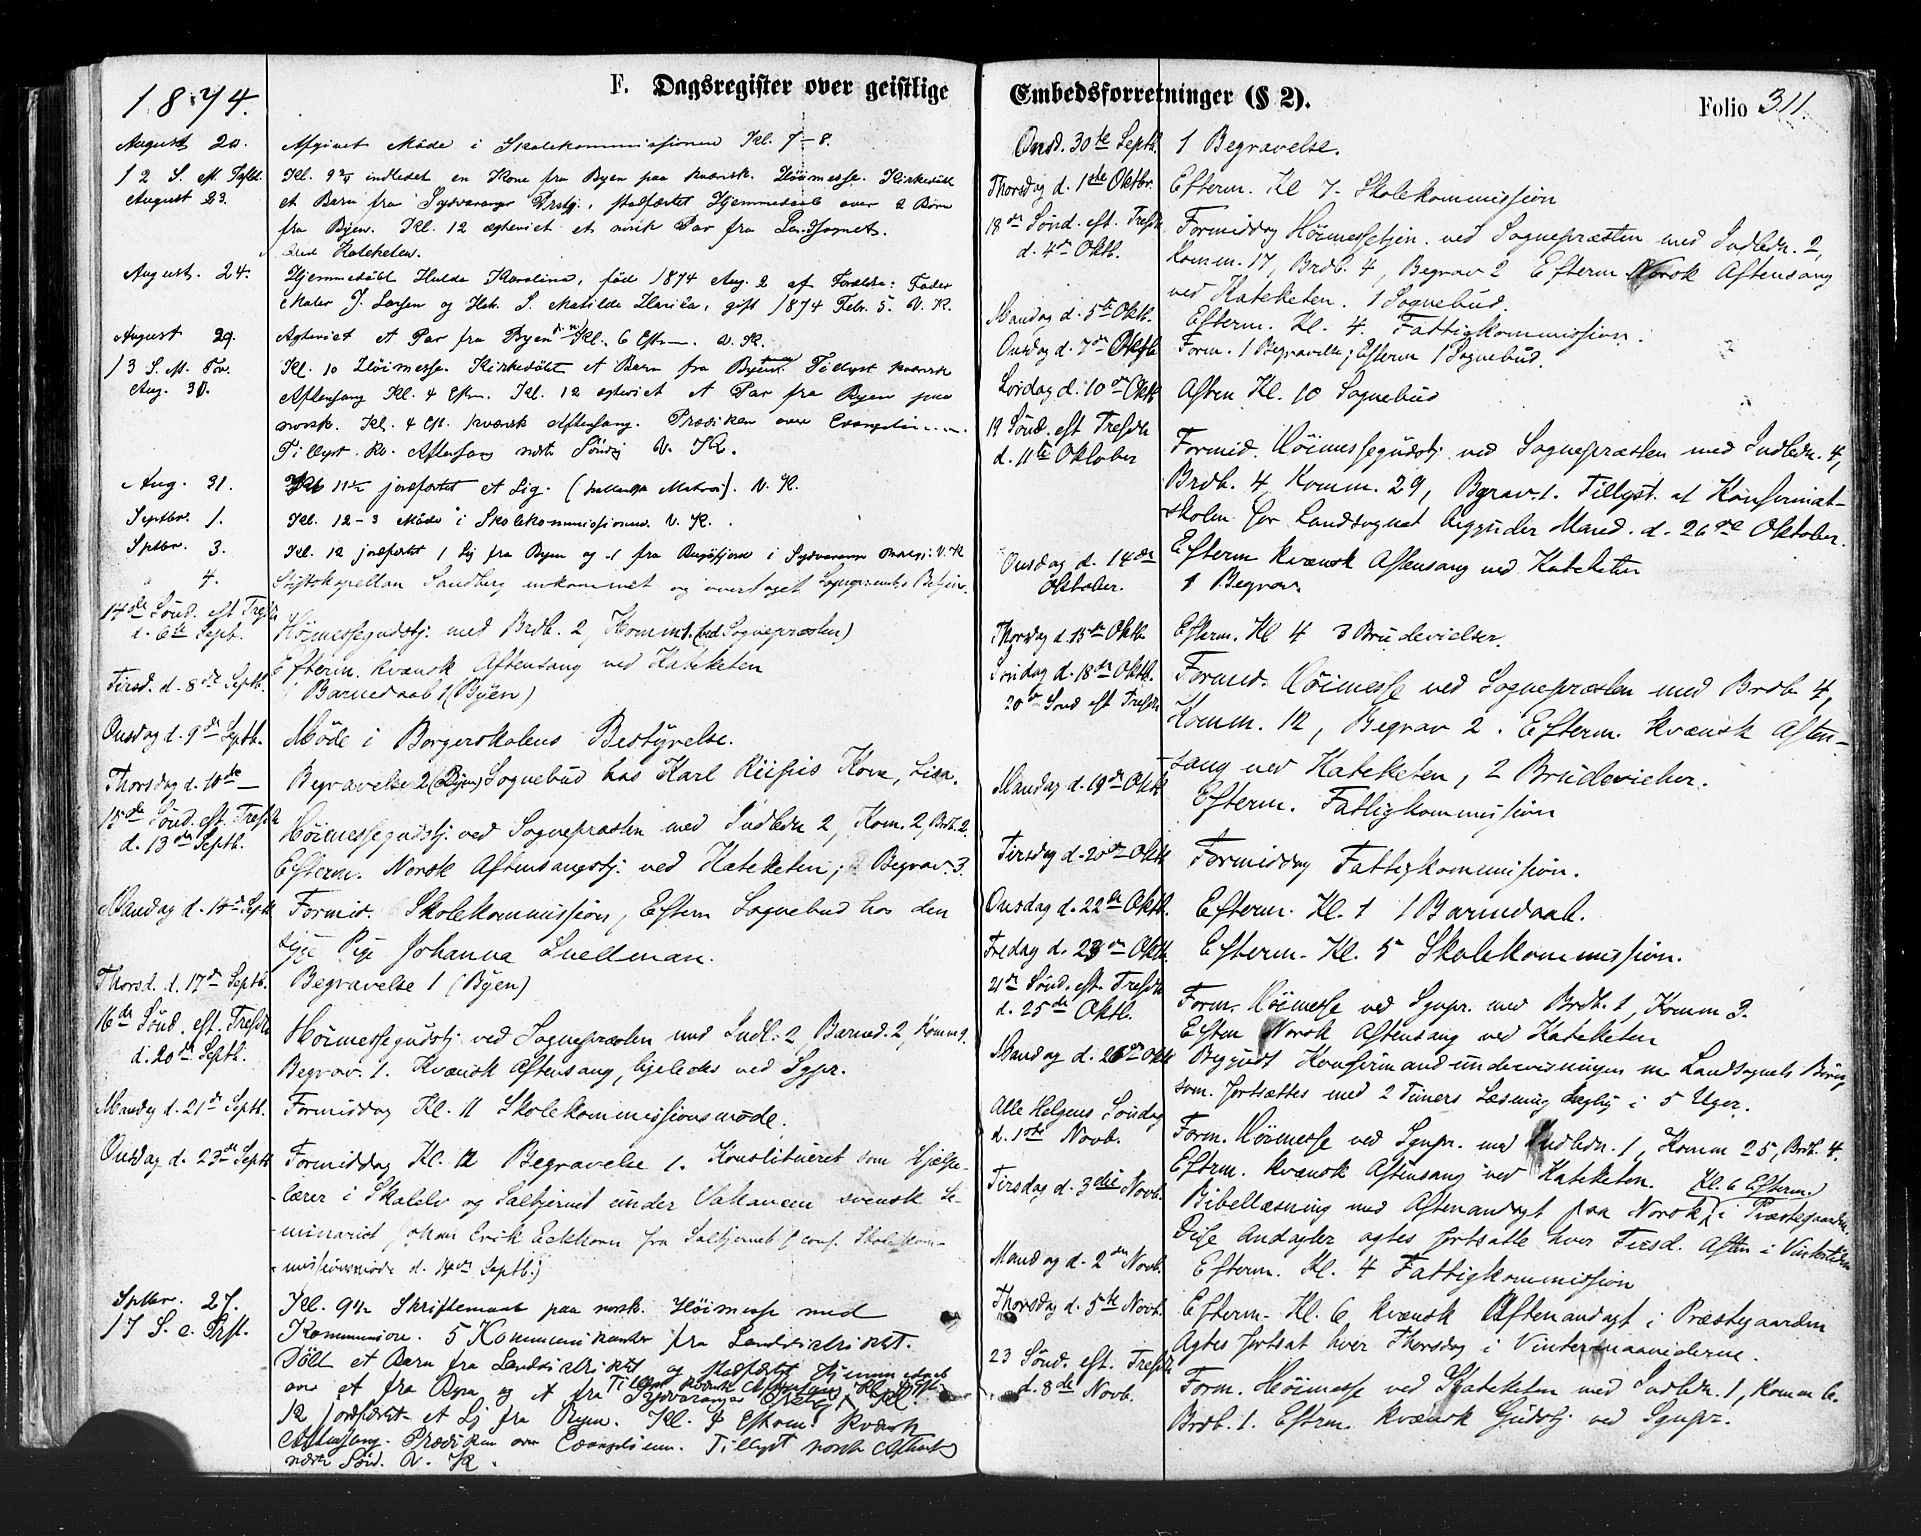 F. Dagsregister over geistlige
1874.
August 20. Afgivet Møde i Skolekommissionen Kl. 7-8.
12 S. e. Kl. 9 indledet en Kone fra Byen paa kvænsk. Høimesse. Kirkedøbt
August 23. et Barn fra Sydvaranger, stadfæstet Hjemmedaab over 2 Børn
fra Byen. Kl. 12 ægteviet et norsk Par fra
Kateketen.
August. 24. Hjemmedøbt Hulda Karolina, fød 1874 Aug. 2 af Forældre: Fader
J. Larsen og S. Matilde, gift 1874 Febr. 5. V. K.
August 29. Ægteviet et Par fra Byen Kl. 6 Efterm. V. K.
13 S. e. Kl. 10 Høimesse. Kirkedøbt et Barn fra Byen. Tillyst kvænsk
Aug. 30. Aftensang Kl. 4 Efterm. Kl. 12 ægteviet et Par fra Byen paa
norsk. Kl. 4 Eft. kvænsk Aftensang. Prædiken over
Tillyst Aftensang næste Søndag V. K.
Aug. 31. jordfæstet et Lig. V. K.
Septbr. 1. Kl. 12-3 Møde i Skolekommissionen. V. K.
Sptbr. 3. Kl. 12 jordfæstet 1 Lig fra Byen og 1 fra Bugøfjord i Sydvaranger V. K
" 4. Stiftskapellan Sandberg ankommet og overdraget
14de Sønd. eft Trefdh Høimessegudstj. med Brdb. 2, Komm. (ved Sognepræsten)
d. 6te Sept.
Efterm. kvænsk Aftensang ved Kateketen
Tirsd. d. 8de Septb. 1 Barnedaab (Byen)
Onsdag d. 9de Septb. Møde i Borgerskolens Bestyrelse.
Thorsdag d. 10de — Begravelse 2 (Byen) Sognebud hos Karl Kone, Lisa.
15de Sønd. eft. Trefdh Høimessegudstj. ved Sognepræsten med Indledn 2, Kom. 2, Brdb. 2.
d. 13de Septb.
Efterm. Norsk Aftensangstj. ved Kateketen; Begrav. 3.
Mandag d. 14de Septb Formid. Skolekommission, Efterm Sognebud hos den
syge Pige Johanna Snellman.
Thorsd. d. 17de Septb. Begravelse 1 (Byen)
16de Sønd. eft. Trefdh Høimessegudstj ved Sognepræsten med Indl: 2, Barned. 2, Komm 9.
d. 20de Septb.
Begrav. 1. Kvænsk Aftensang, ligeledes ved Sgpr.
Mandag d. 21de Septb. Formiddag Kl. 11 Skolekommissionsmøde.
Onsdag d. 23de Septb Formiddag Kl. 12 Begravelse 1. Konstitueret som Hjælpe-
lærer i Skalelv og Salttjernet under Vakancen svensk Se-
minarist Johan Erik fra Salttjernet (conf. Skolekom-
missionsmøde d. 14de Septb.)
Sptbr. 27. Kl. 9½ Skriftemaal paa norsk. Høimesse med
17 S. e. Kommunion. 5 Kommunikanter fra Landdistriktet.
Døbt et Barn fra Landdistriktet og stadfæstet Hjemmedaab
over et fra Byen og et fra Sydvaranger Kl.
12 jordfæstet et Lig fra Byen. Kl. 4 Efterm. kvænsk
Aftensang. Prædiken over Evangelium. Tillyst norsk Aftensang
næste Sønd. V. K.
Embedsforretninger (§ 2).
Folio 311.
Onsd. 30te Septb. 1 Begravelse.
Thorsdag d. 1ste Oktbr. Efterm. Kl 7 Skolekommission
18de Sønd. eft. Trefdh Formiddag Høimessetjen. ved Sognepræsten med Indledn. 2,
d. 4de Oktb. Komm. 17, Brdb. 4, Begrav 2 Efterm Norsk Aftensang
ved Kateketen. 1 Sognebud.
Mandag d. 5te Oktb. Efterm. Kl. 4. Fattigkommission.
Onsdag d. 7de Oktb Form. 1 Begravelse; Efterm 1 Sognebud.
Lørdag d. 10de Oktb Aften Kl. 10 Sognebud
19 Sønd. eft Trefdh
d. 11te Oktober Formid. Høimessegudstj ved Sognepræsten med Indledn. 4,
Brdb. 4, Komm. 29, Bgrav. 1. Tillyst at Konfirmat-
skolen for Landsognet begynder Mand. d. 26de Oktober.
Efterm kvænsk Aftensang ved Kateketen
Onsdag d. 14de
Oktober. 1 Begrav.
Thorsdag d. 15de Oktb. Efterm. Kl 4 3 Brudevielser.
Søndag d. 18de Oktb. Formid. Høimesse ved Sognepræsten med Brdb 4,
20de Sønd eft Trefdh Komm. 12, Begrav 2. Efterm. kvænsk Aften-
sang ved Kateketen, 2 Brudevielser.
Mandag d. 19de Oktb Efterm. Fattigkommission
Tirsdag d. 20de Oktb Formiddag Fattigkommission.
Onsdag d. 22de Oktb. Efterm. Kl. 1 1 Barnedaab.
Fredag d. 23de Oktb. Efterm. Kl. 5 Skolekommission.
21de Sønd. eft. Trefdh Form. Høimesse ved Sgnpr. med Brdb. 1, Komm 3.
d. 25de Oktb. Efterm Norsk Aftensang ved Kateketen
Mandag d. 26de Oktb Begyndt Konfirmandundervisningen m Landsognets Børn,
som fortsættes med 2 Timers Læsning daglig i 5 Uger.
Alle Helgens Søndag Form. Høimesse ved Sgnpr. med Indledn. 1, Komm 25, Brdb. 4.
d. 1ste Novb. Eftrm. kvænsk Aftensang ved Kateketen.
Tirsdag d. 3die Novb. Bibellæsning med Aftenandagt paa Norsk (Kl. 6 Efterm.) i Præstegaarden
Disse Andagter agtes fortsatte hver Tirsd. Aften i Vintertiden
Mandag d. 2den Novb. Efterm. Kl. 4 Fattigkommission
Thorsdag d. 5te Novb. Efterm. Kl. 6 kvænsk Aftenandagt i Præstegaarden
Agtes fortsat hver Thorsdag i Vintermaanederne.
23 Sønd. eft. Trefdh Form. Høimesse ved Kateketen med Indledn. 1, Komm 6.
d. 8de Novb. Brdb. 1. Efterm. kvænsk Gudstj ved Sgnpr.